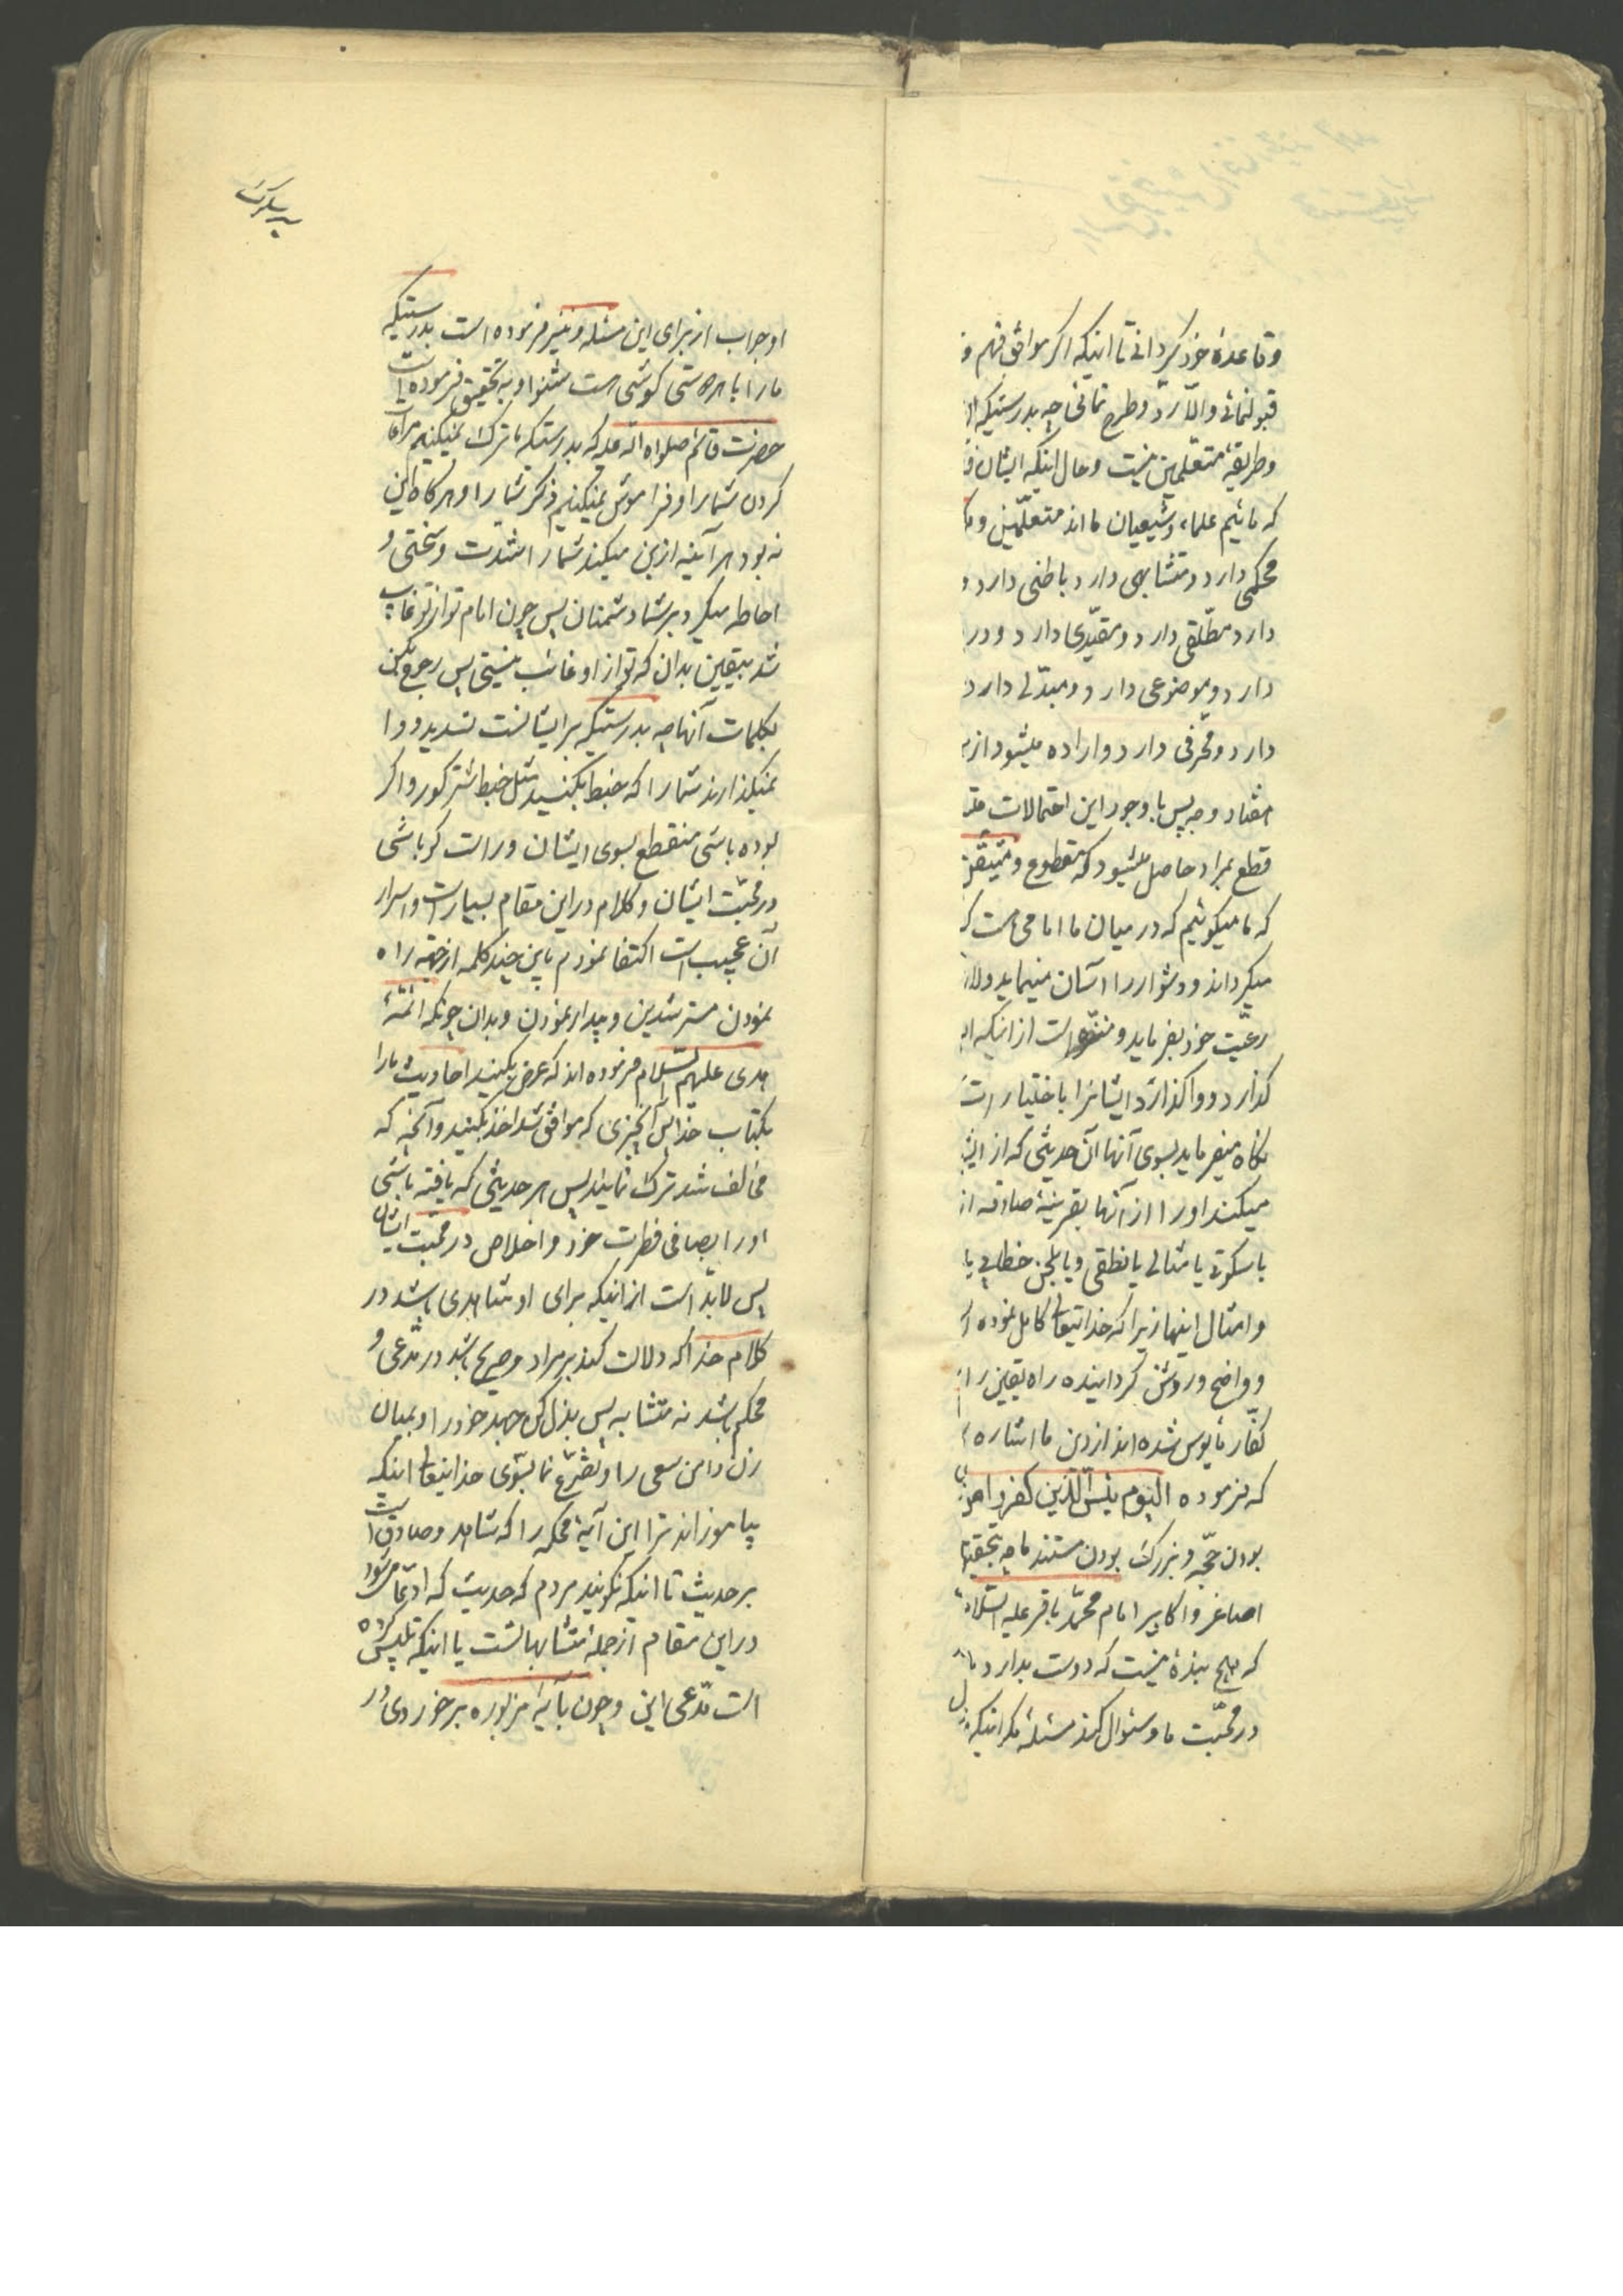 وقاعدهٔ خود گردانی تا اینکه اگر موافق فهم و
قبولنمائی والّا ردّ وطرح نمائی چه بدرستیکه
وطریقهٔ متعلّمین نیست وحال اینکه ایشان
که مائیم علماء وشیعیان ما اند متعلّمین و
محکمی دارد ومتشابهی دارد باطنی دارد و
دارد مطلقی دارد ومقیّدی دارد ودر
دارد وموضوعی دارد ومبدّلی دارد
دارد ومحرّفی دارد واراده میشود از
هفتاد وجه پس با وجود این احتمالات
قطع بمراد حاصل میشود که مقطوع ومتیقّن
که ما میگوئیم که در میان ما امامی هست که
میگرداند ودشوار را آسان مینماید
رعیّت خود بفرماید ومنزّه است از اینکه
گذارد وواگذارد ایشانرا باختیار
نگاه میفرماید بسوی آنها آن حدیثی که از
میکند اورا از آنها بقرینهٔ صادقه از
یا سکوتی یا مثالی یا نطقی ویا بلحن خطابی یا
وامثال اینها زیرا که خدایتعالی کامل نموده
وواضح وروشن گردانیده راه یقین را
کفّار مأیوس شده اند از دین ما اشاره
که فرموده الیوم یئس الّذین کفروا
بودن حجّه وبزرگ بودن مستند ما چه بتحقیق
اصاغر واکابر امام محمّد باقر علیه السّلام
که هیچ بندهٔ نیست که دوست بدارد
در محبّت ما وسئوال کند مسئلهٔ مگر اینکه
او جواب از برای این مسئله ونیز فرموده است بدرستیکه
مارا با هر دوستی گوشی هست شنوا وبه تحقیق فرموده است
حضرت قائم صلواه الله علیه که بدرستیکه ما ترک نمیکنیم مراعات
کردن شمارا وفراموش نمیکنیم ذکر شمارا وهرگاه این
نه بود هر آینه ازین میکند شمارا شدت وسختی و
احاطه میکرد بر شما دشمنان پس چون امام تو از تو غایب
شد بیقین بدان که تو از او غائب نیستی پس رجوع بکن
بکلمات آنها چه بدرستیکه بر ایشانست تسدید ووا
نمیگذارند شمارا که خبط بکنید مثل خبط شتر کور واگر
بوده باشی منقطع بسوی ایشان وراست گو باشی
در محبّت ایشان وکلام در این مقام بسیار است واسرار
آن عجیب است اکتفا نمودم باین چند کلمه از جهة راه
نمودن مسترشدین وبیدار نمودن وبدان چونکه ائمّهٔ
هدی علیهم السّلام فرموده اند که عرض بکنید احادیث مارا
بکتاب خدا پس آنچیزی که موافق شد اخذ بکنید وآنچه که
مخالف شد ترک نمایند پس هر حدیثی که یافته باشی
اورا بصافی فطرت خود واخلاص در محبّت ایشان
پس لابدّ است از اینکه برای او شاهدی باشد در
کلام خدا که دلالت کند بر مراد وصریح باشد در مدّعی و
محکم باشد نه متشابه پس بذل کن جهد خود را وبمیان
زن دامن سعی را وتضرّع نما بسوی خدایتعالی اینکه
بیاموزاند ترا این آیهٔ محکمه را که شاهد وصادق است
بر حدیث تا اینکه نگویند مردم که حدیث که ادّعا میشود
در این مقام از جملهٔ متشابهاتست یا اینکه تلبیس کرده
است مدّعی این وچون بآیهٔ مزبوره برخوردی در